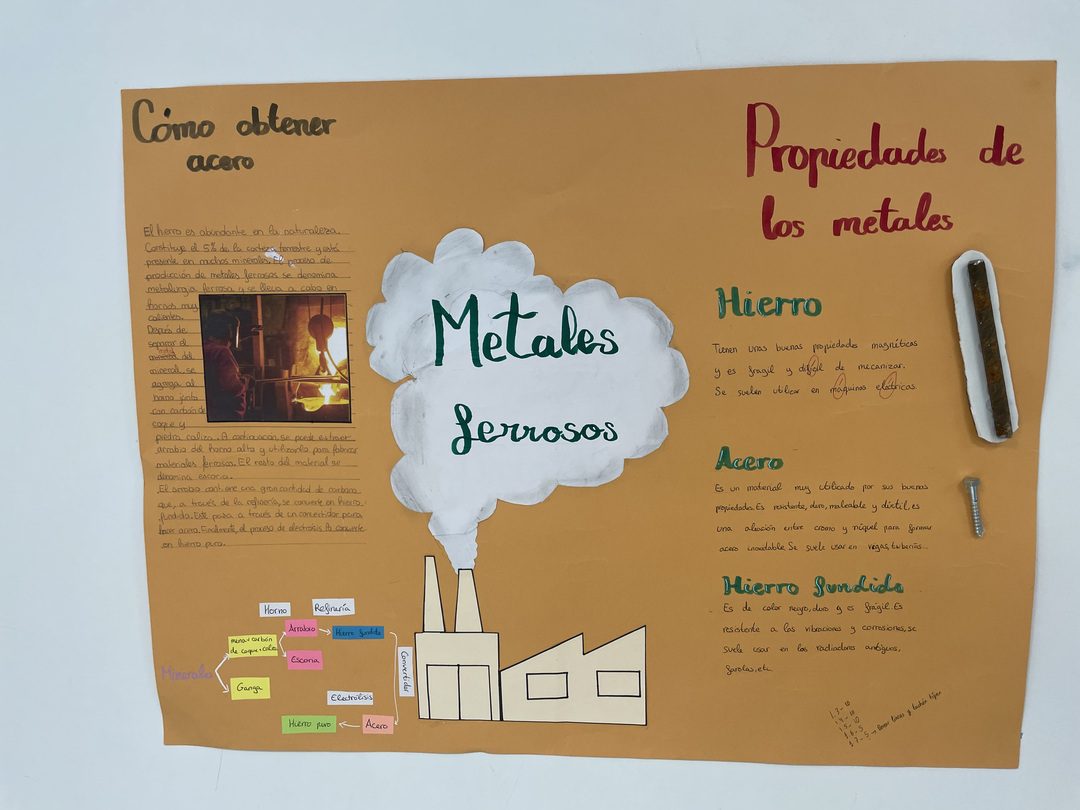 Cómo obtener
acero
El hierro es abundante en la naturaleza.
Constituye el 5% de la corteza terrestre y está
presente en muchos minerales. El proceso de
producción de metales ferrosos se denomina
metalurgia ferrosa y se lleva a cabo en
hornos muy
calientes.
Después de
separar el
mineral del
mineral, se
agrega al
horno junto
con carbón de
coque y
piedra caliza. A continuación, se puede extraer
arrabio del horno alto y utilizarlo para fabricar
materiales ferrosos. El resto del material se
denomina escoria.
El arrabio contiene una gran cantidad de carbono
que, a través de la refinería, se convierte en hierro
fundido. Este pasa a través de un convertidor para
acero. Finalmente, el proceso de electrolisis lo convierte
en hierro puro.
Minerales
mena + carbón
de coque + caliza
Ganga
Horno
Refinería
Arrabio
Escoria
Hierro fundido
Convertidor
Electrólisis
Acero
Hierro puro
Metales
ferrosos
Propiedades de
los metales
Hierro
Tienen unas buenas propiedades magnéticas
y es fragil y difícil de mecanizar.
Se suelen utilizar en máquinas eléctricas.
Acero
Es un material muy utilizado por sus buenas
propiedades. Es resistente, duro, maleable y dúctil, es
una aleación entre cromo y níquel para formar
acero inoxidable. Se suele usar en vigas, tuberías...
Hierro fundido
Es de color negro, duro y es frágil. Es
resistente a las vibraciones y corrosiones, se
suele usar en los radiadores antiguos,
farolas, etc.
1.3 - 10
1.4 - 10
1.5 - 10
1.6 - 5
1.7 - 5 →